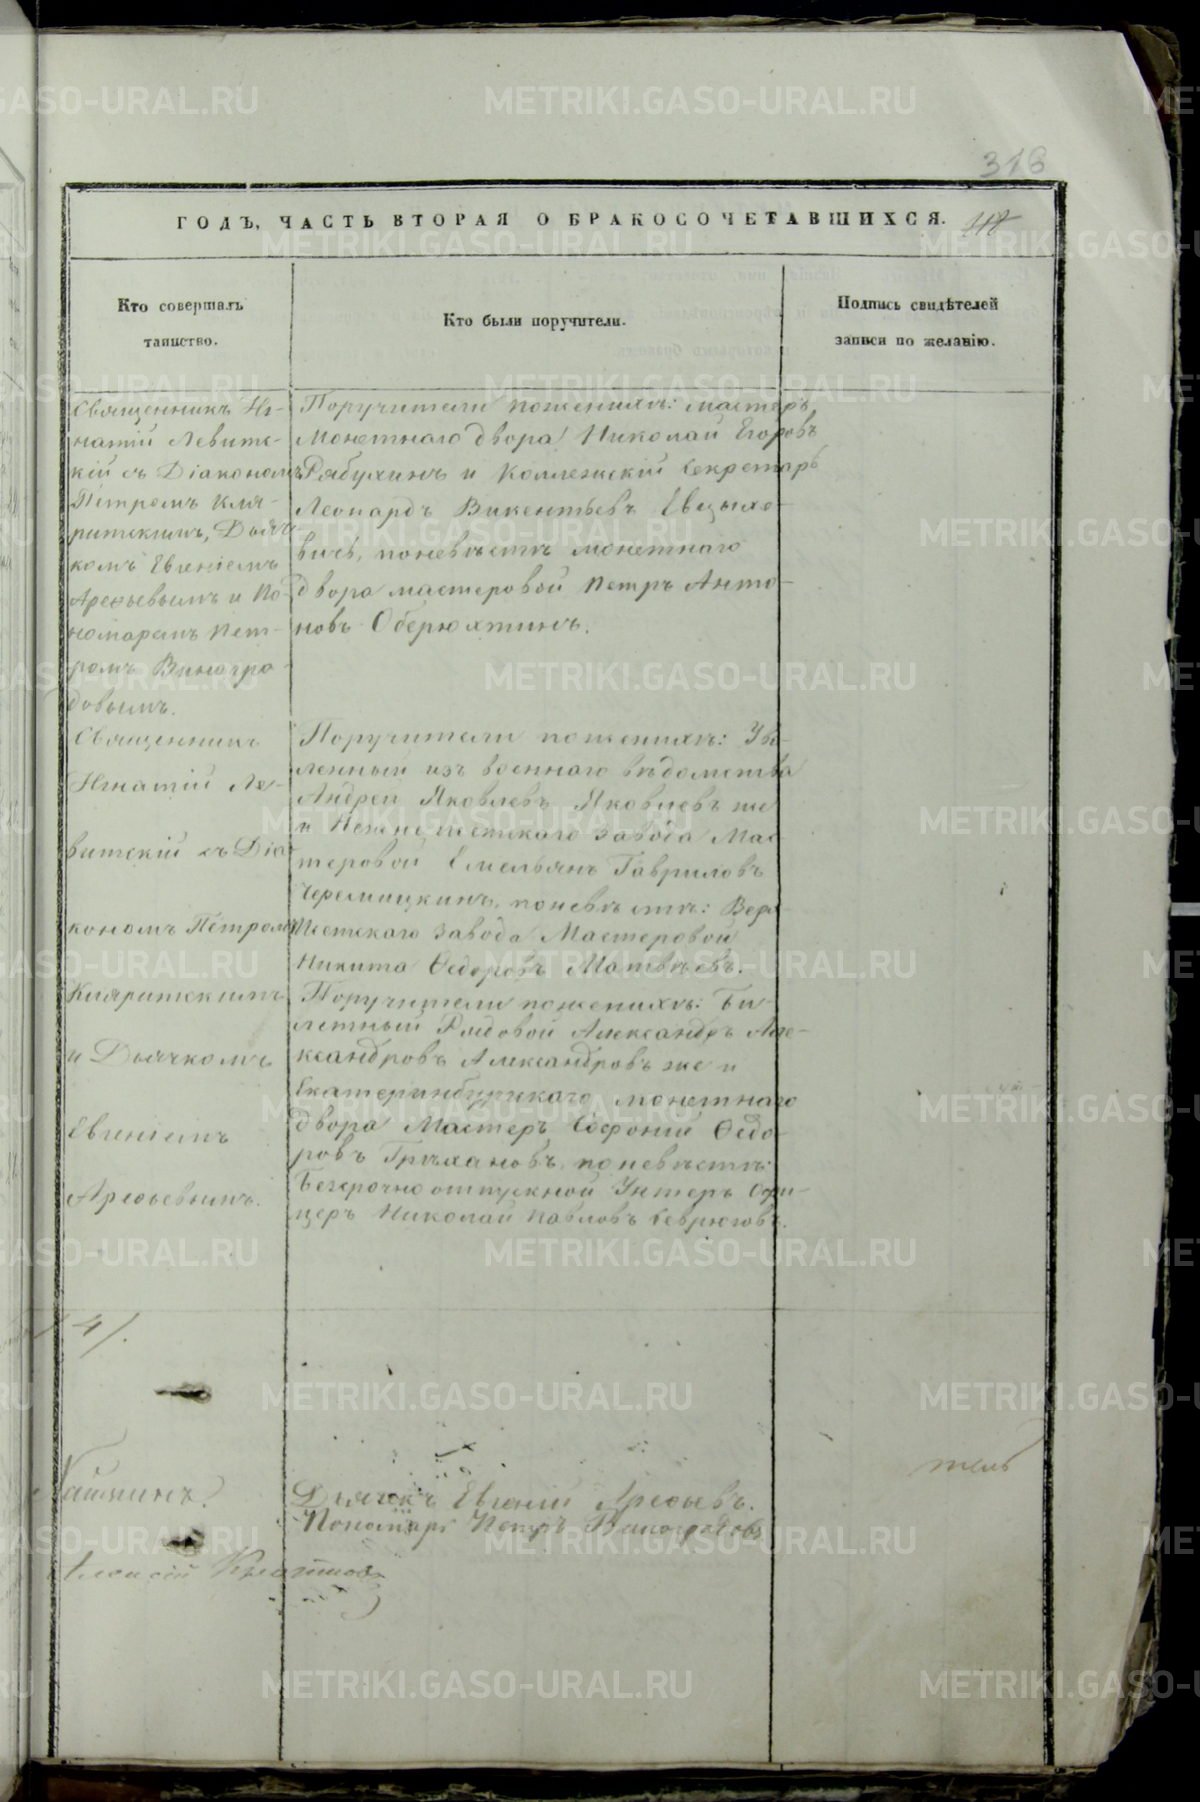 313
ГОДЪ, ЧАСТЬ ВТОРАЯ О БРАКОСОЧЕТАВШИХСЯ.
Кто совершалъ
таинство.
Кто были поручители.
Подпись свидѣтелей
записи по желанію.
Священникъ Иг-
натій Левитс-
кій съ Діакономъ
Петромъ Кля-
ритскимъ, Дьяч-
комъ Евгеніемъ
Арефьевымъ и По-
номаремъ Пет-
ромъ Виногра-
довымъ.
Поручители по женихѣ: мастеръ
Монетнаго двора Николай Егоровъ
Рябухинъ и Коллежскій Секретарь
Леонардъ Викентьевъ Евцыхо-
вичь, по невѣстѣ монетнаго
двора мастеровой Петръ Анто-
новъ Оберюхтинъ.
Священникъ
Игнатій Ле-
витскій съ Діа-
кономъ Петромъ
Кляритскимъ
и Дьячкомъ
Евгеніемъ
Арефьевымъ.
Поручители по женихѣ: Уво-
ленный изъ военнаго вѣдомства
Андрей Яковлевъ Яковлевъ же
и Нижнеисетскаго завода Мас-
теровой Емельянъ Гавриловъ
Черемицкинъ, по невѣстѣ: Верх-
Исетскаго завода Мастеровой
Никита Ѳедоровъ Матвѣевъ.
Поручители по женихѣ: Би-
летный Рядовой Александръ Але-
ксандровъ Александровъ же и
Екатеринбургскаго монетнаго
двора Мастеръ Софоній Ѳедо-
ровъ Грѣхановъ, по невѣстѣ:
Безсрочноотпускной Унтеръ Офи-
церъ Николай Павловъ Севрюговъ.
4/.
тель
Дьячекъ Евгеній Арефьевъ.
Пономарь Петръ Виноградовъ
METRIKI.GASO-URAL.RU